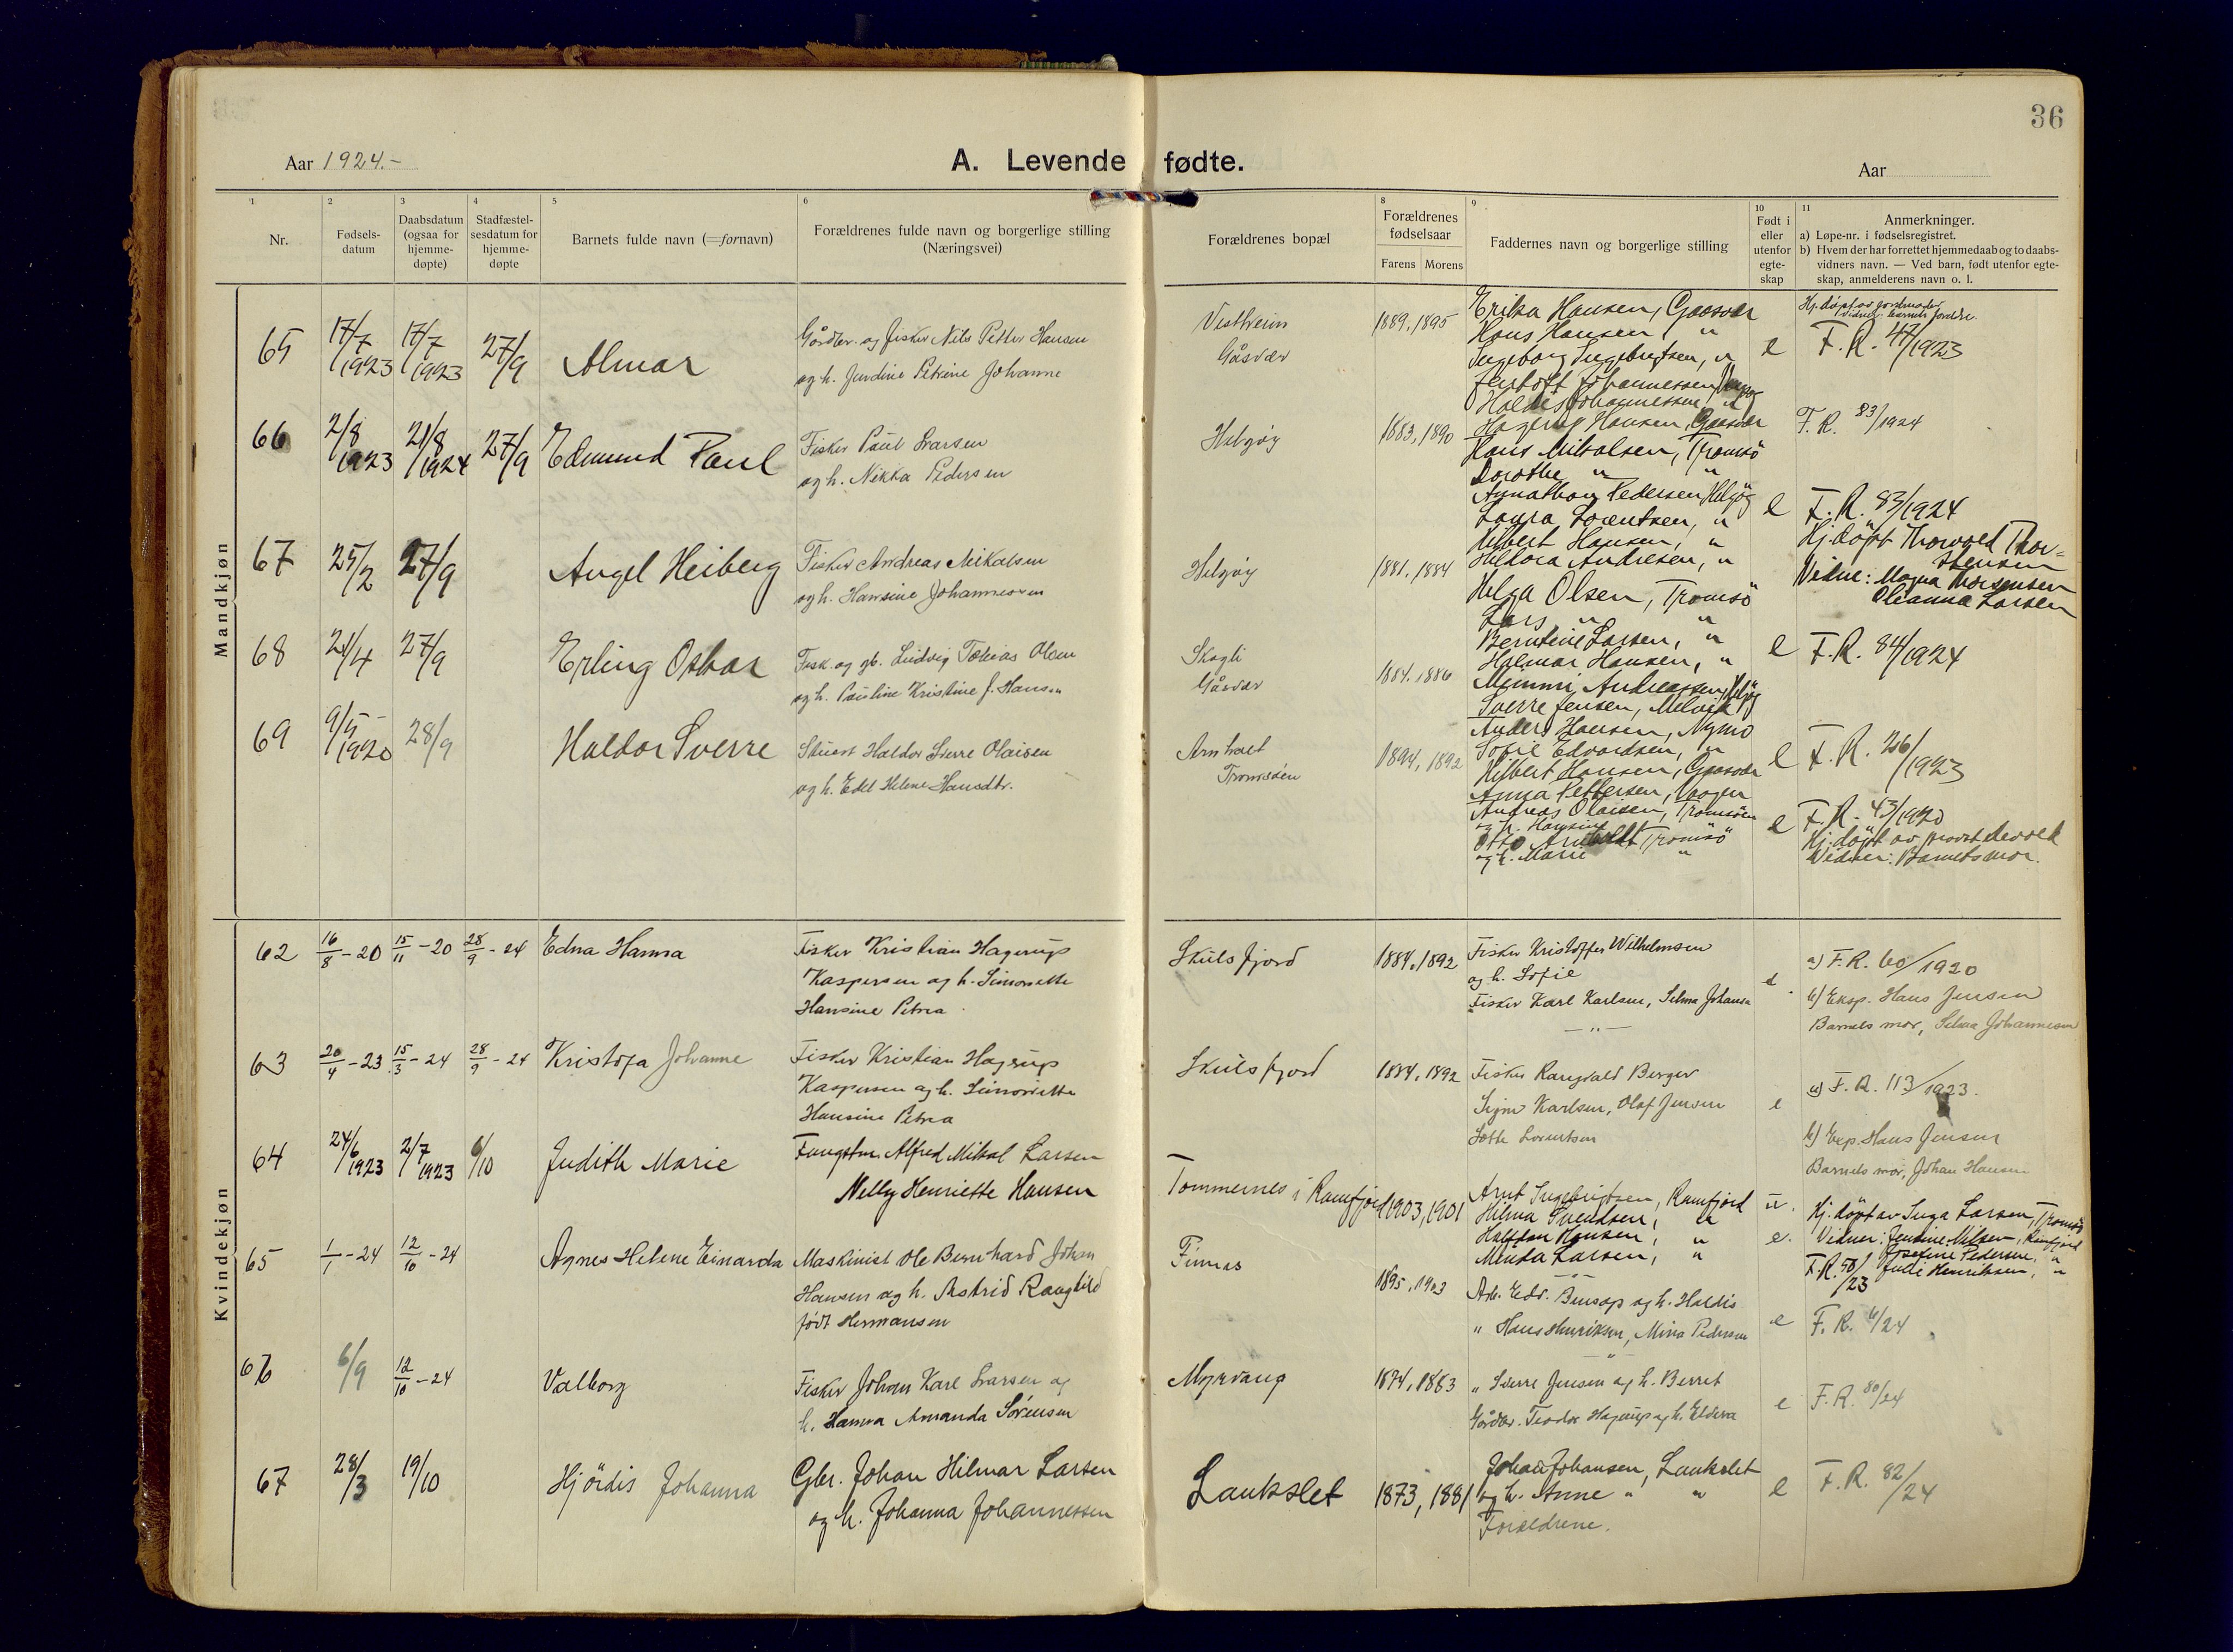 36
Aar 1924.-
A. Levende fødte.
Aar
1 2 3 4 5 6 8 9 10 11
Nr.
Fødsels-
datum
Daabsdatum
(ogsaa for
hjemme-
døpte)
Stadfæstel-
sesdatum for
hjemme-
døpte
Barnets fulde navn (=fornavn)
Forældrenes fulde navn og borgerlige stilling
(Næringsvei)
Forældrenes bopæl
Forældrenes
fødselsaar
Farens Morens
Faddernes navn og borgerlige stilling
Født i
eller
utenfor
egte-
skap
Anmerkninger.
a) Løpe-nr. i fødselsregistret.
b) Hvem der har forrettet hjemmedaab og to daabs-
vidners navn. — Ved barn, født utenfor egte-
skap, anmelderens navn o. l.
Mandkjøn
65 17/7 1923 17/7 1923 27/9 Almar
Gårdbr. og fisker Nils Petter Hansen
og h. Jendine Petrine Johanne
Vestheim
Gåsvær
1889, 1895
Erika Hansen, Gaasvær
Hans Hansen, "
Ingeborg Ingebrigtsen, "
Johannessen
Haldis Johannessen, "
e
Hj. døpt av jordmoder
Vidner: Barnets foreldre.
F.R. 47/1923
66 2/8 1923 21/8 1924 27/9 Edmund Paul
Fisker Paul Larsen
og h. Nikka Pedersen
Helgøy
1883, 1890
Hagerup Hansen, Gaasvær
Hans Mikalsen, Tromsö
Dorothe " "
Annathon Pedersen, Helgöy
Laura Lorentsen, "
e
F.R. 83/1924
F.R. 83/1924
Hj. döpt Thorvald Thor=
stensen
Vidne: Magna Thorstensen
Oleanna Larsen
67 25/2 27/9 Angel Heiberg
Fisker Andreas Mikalsen
og h. Hansine Johannessen
Helgøy
1881, 1884
Hilbert Hansen, "
Heldora Andresen, "
Helga Olsen, Tromsö
Lars " "
Berntine Larsen, "
e
F.R. 84/1924
68 21/4 27/9 Erling Oskar
Fisk. og gb. Ludvig Tobias Olsen
og h. Pauline Kristine J. Hansen
Skogli
Gåsvær
1884. 1886
Halmar Hansen, "
Mimmi Andreassen, Helgöy
Sverre Jensen, Melvik
Anders Hansen, Nymo
Sofie Edvardsen, "
e
F.R. 26/1923
69 9/5 1920 28/9 Haldor Sverre
Stuert Haldor Sverre Olaisen
og h. Edel Helene Hansdtr.
Arnholt
Tromsöen
1894, 1892
Hilbert Hansen, Gaasvær
Anna Pettersen, Vaagen
Andreas Olaisen, Tromsöen
og h. Hansine
Otto Arnholdt Tromsö
og h. Marie "
e
F.R. 43/1920
Hj. døpt av provst Devold
Vidner: Barnets mor.
Kvindekjøn
62 16/8 - 20 15/11 - 20 28/9 - 24 Edna Hanna
Fisker Kristian Hagerup
Kaspersen og h. Simonette
Hansine Petrea
Skulsfjord
1884, 1892
Fisker Kristoffer Wilhelmsen
og h. Sofie
Fisker Karl Karlsen, Selma Johansen
— " —
e
a) F.R. 60/1920
b) Eksp. Hans Jensen
Barnets mor, Selma Johannesen
63 20/4 - 23 15/3 - 24 28/9 - 24 Kristofa Johanne
Fisker Kristian Hagerup
Kaspersen og h. Simonette
Hansine Petrea
Skulsfjord
1884, 1892
Fisker Rangvald Berger
Signe Karlsen, Olaf Jensen
Lorentsen
e
a) F.R. 113/1923.
b) Exp. Hans Jensen
Barnets mor, Johan Hansen
64 24/6 1923 2/7 1923 6/10 Judith Marie
Fangstm. Alfred Mikal Larsen
Nelly Henriette Hansen
Tommernes i Ramfjord
1903, 1901
Arnt Ingebrigtsen, Ramfjord
Hilma Svendsen, "
Halfdan Hansen, "
Minda Larsen, "
u.
Hj. döpt av Inga Larsen, Tromsö
Vidner: Jendine Nilsen, Ramfjord
Josefine Pedersen, "
Julie Henriksen, "
F.R. 50/23
65 1/1 - 24 12/10 - 24 Agnes Helene Einarda
Maskinist Ole Bernhard Johan
Hansen og h. Astrid Ragnhild
født Hermansen
Finnes
1895, 1903
e.
Arb. Edv. og h. Haldis
" Hans Henriksen, Mina Pedersen
— " —
e
F.R. 6/24
66 6/9 12/10 - 24 Valborg
Fisker Johan Karl Larsen og
h. Hanna Amanda Sørensen
Myrvang
1874, 1883
" Sverre Jensen og h. Berret
Gårdbr. Teodor Hagerup og h. Eldina
e
F.R. 80/24
67 28/3 19/10 Hjördis Johanna
Gbr. Johan Hilmar Larsen
og h. Johanna Johannessen
Laukslet
1873, 1881
Johan Johansen, Laukslet
og h. Anne " "
Foreldrene.
e
F.R. 82/24